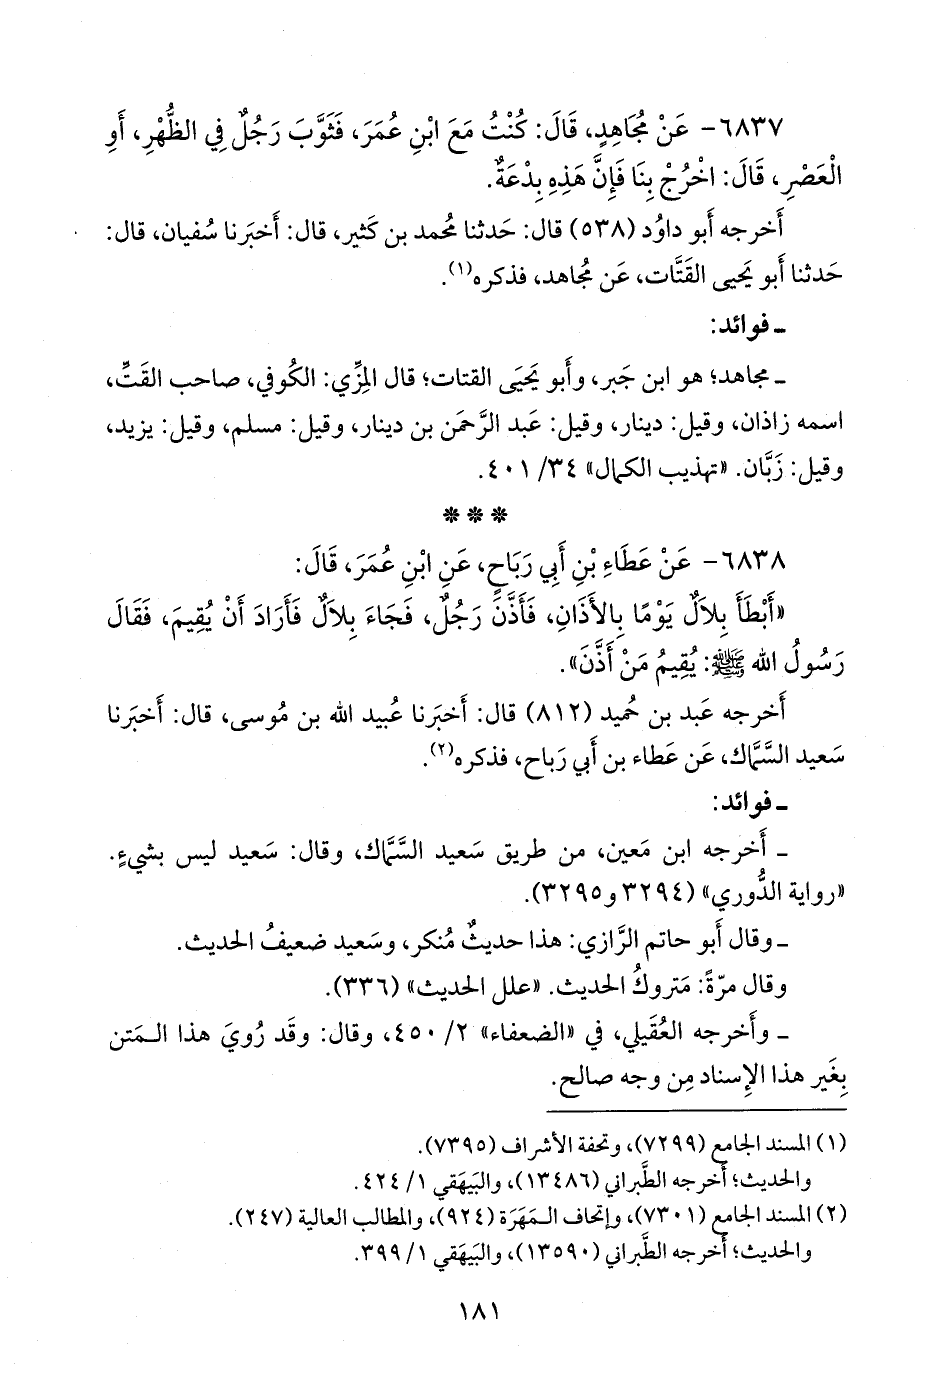 ٦٨٣٧- عَنْ مُجَاهِدٍ، قَالَ: كُنْتُ مَعَ ابْنِ عُمَرَ، فَثَوَّبَ رَجُلٌ فِي الظُّهْرِ، أَوِ
الْعَصْرِ، قَالَ: اخْرُجْ بِنَا فَإِنَّ هَذِهِ بِدْعَةٌ.
أَخرجه أَبو داوُد (٥٣٨) قال: حَدثنا مُحمد بن كَثير، قال: أَخبَرنا سُفيان، قال:
حَدثنا أَبو يَحيى القَتَّات، عَن مُجاهد، فذكره(١).
ـ فوائد:
ـ مجاهد؛ هو ابن جَبر، وأَبو يَحيَى القتات؛ قال المِزِّي: الكُوفي، صاحب القَتِّ،
اسمه زاذان، وقيل: دينار، وقيل: عَبد الرَّحمَن بن دينار، وقيل: مسلم، وقيل: يزيد،
وقيل: زَبَّان. «تهذيب الكمال» ٣٤/ ٤٠١.
***
٦٨٣٨- عَنْ عَطَاءِ بْنِ أَبِي رَبَاحٍ، عَنِ ابْنِ عُمَرَ، قَالَ:
«أَبْطَأَ بِلاَلٌ يَوْمًا بِالأَذَانِ، فَأَذَّنَ رَجُلٌ، فَجَاءَ بِلاَلٌ فَأَرَادَ أَنْ يُقِيمَ، فَقَالَ
رَسُولُ الله ﷺ: يُقِيمُ مَنْ أَذَّنَ».
أَخرجه عَبد بن حُميد (٨١٢) قال: أَخبَرنا عُبيد الله بن مُوسى، قال: أَخبَرنا
سَعيد السَّمَّاك، عَن عَطاء بن أَبي رَباح، فذكره(٢).
ـ فوائد:
ـ أَخرجه ابن مَعين، من طريق سَعيد السَّمَّاك، وقال: سَعيد ليس بشيءٍ.
«رواية الدُّوري» (٣٢٩٤ و٣٢٩٥).
ـ وقال أَبو حاتم الرَّازي: هذا حديثٌ مُنكر، وسَعيد ضعيفُ الحديث.
وقال مرّةً: مَتروكُ الحديث. «علل الحديث» (٣٣٦).
ـ وأَخرجه العُقَيلي، في «الضعفاء» ٢/ ٤٥٠، وقال: وقَد رُويَ هذا الـمَتن
بِغَير هذا الإِسناد مِن وجه صالح.
(١) المسند الجامع (٧٢٩٩)، وتحفة الأشراف (٧٣٩٥).
والحديث؛ أخرجه الطَّبراني (١٣٤٨٦)، والبَيهَقي ١/ ٤٢٤.
(٢) المسند الجامع (٧٣٠١)، وإتحاف الـمَهَرَة (٩٢٤)، والمطالب العالية (٢٤٧).
والحديث؛ أَخرجه الطَّبراني (١٣٥٩٠)، والبَيهَقي ١/ ٣٩٩.
١٨١